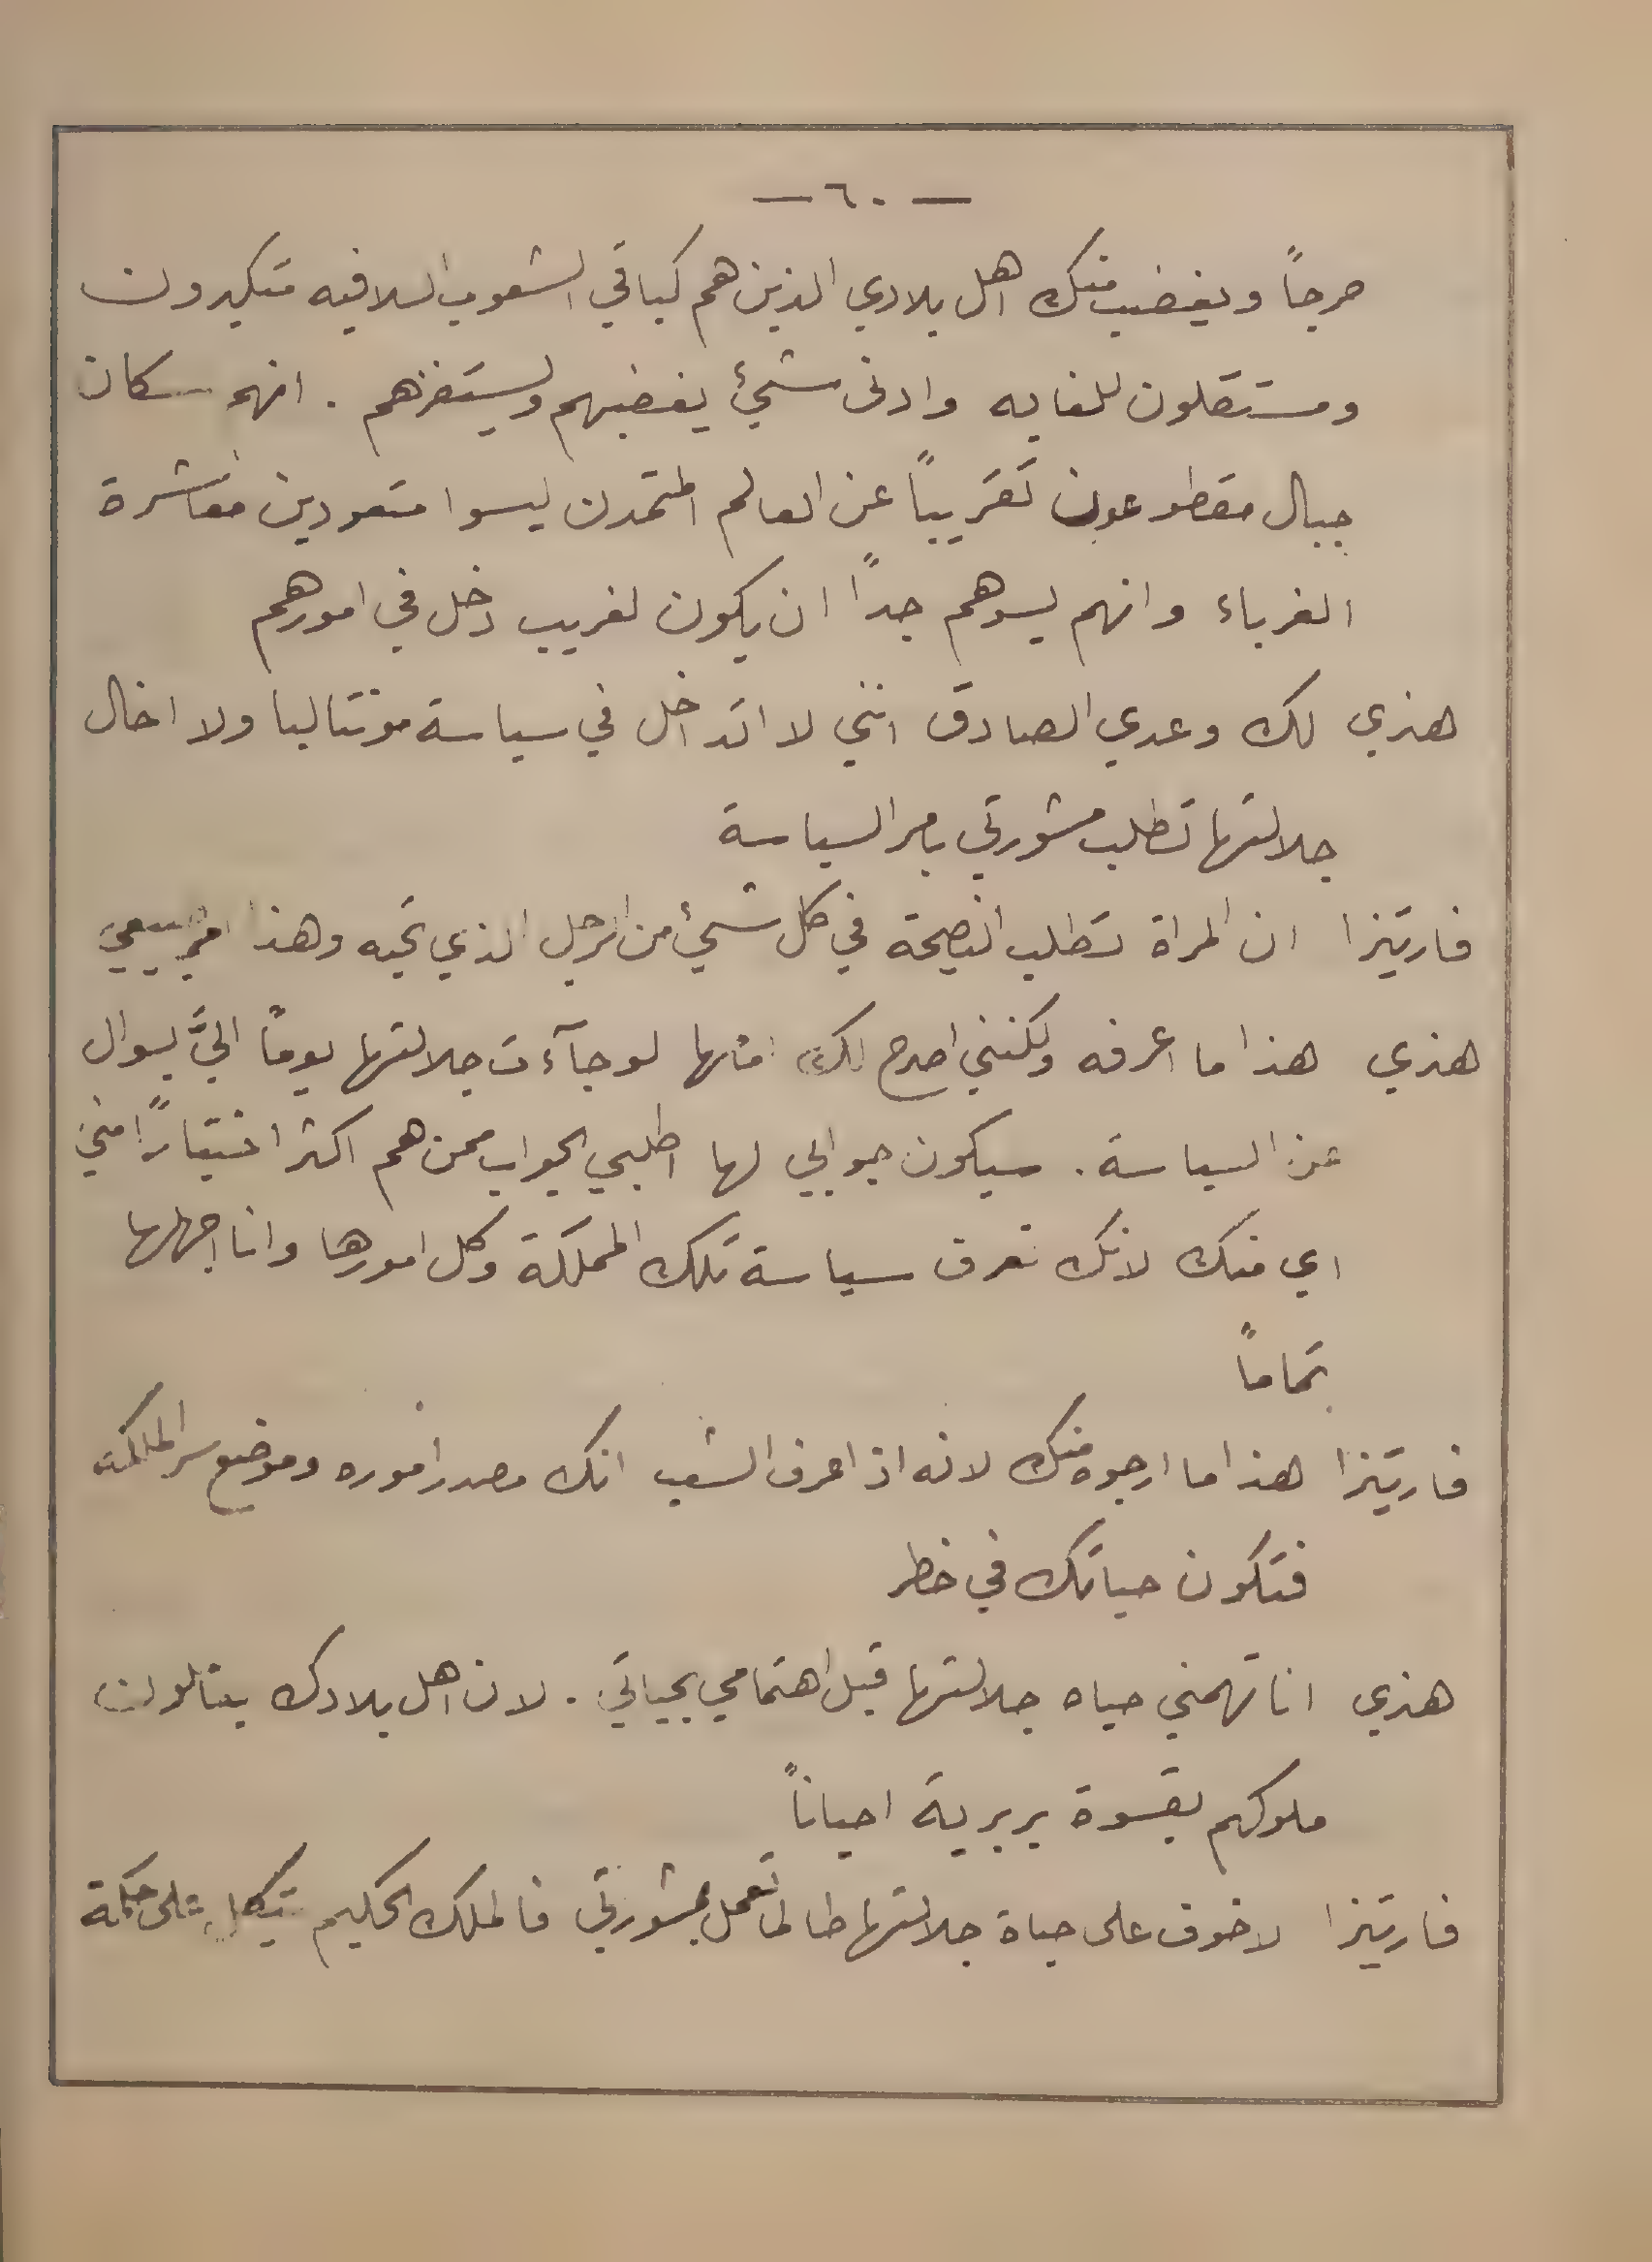 — ٦٠ —
حرجاً ويغضب منك اهل بلادي الذين هم كباقي الشعوب السلافيه متكبرون
ومستقلون للغايه وادنى شيئ يغضبهم ويستفزهم . انهم سكان
جبال مقطوعون تقريباً عن العالم المتمدن ليسوا متعودين معاشرة
الغرباء وانهم يسوهم جداً ان يكون لغريب دخل في امورهم
هنري لك وعدي الصادق انني لا اتداخل في سياسة مونتاليا ولا اخال
جلالتها تطلب مشورتي بامر السياسة
فاريتزا ان المراة تطلب النصيحة في كل شيئ من الرجل الذي تحبه وهذا
هنري هذا ما اعرفه ولكنني اصرح لك لو جآءت جلالتها يوماً اليَّ بسوال
عن السياسة . سيكون جوابي لها اطلبي الجواب ممن هم اكثر اختباراً مني
اي منك لانك تعرف سياسة تلك المملكة وكل امورها وانا اجهلها
تماماً
فاريتزا هذا ما ارجوه منك لانه اذا عرف الشعب انك مصدر اموره وموضع سر الملكة
فتكون حياتك في خطر
هنري انا تهمني حياه جلالتها قبل اهتمامي بحياتي . لان اهل بلادك يقتلون
ملوكهم بقسوة بربرية احياناً
فاريتزا لا خوف على حياة جلالتها طالما تعمل بمشورتي فالملك الحكيم يتكل على حكمة